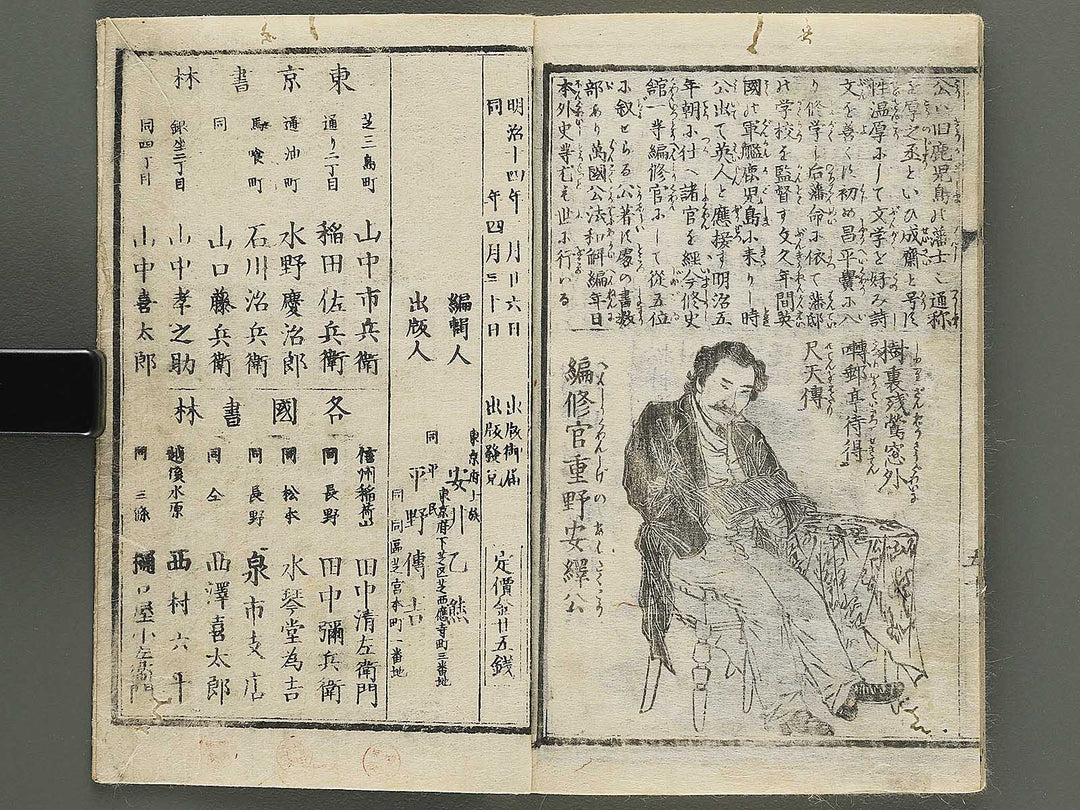 公ハ旧鹿児島の藩士ニ〆通称
を厚之丞といひ成齋と号す
性温厚にして文学を好み詩
文を善くす初め昌平黌に入
り修学し后藩命に依て藩邸
の学校を監督す文久年間英
國の軍艦鹿児島に来りし時
公出て英人と應接す明治五
年朝に仕へ諸官を経今修史
舘一等編修官にして従五位
に叙せらる公著す處の書数
部あり萬國公法和解編年日
本外史等尤も世に行ハる
樹裏残鶯窓外
囀郵亭待得
尺天傳
編修官重野安繹公
五
明治十四年 月廿六日 出版御届
同 年四月三十日 出版發兌
定價金廿五銭
編輯人
東京府士族
安川乙熊
東京府下芝区芝西應寺町三番地
出版人
同 平民
平野傳吉
同 同區芝宮本町一番地
東京書林
芝三島町 山中市兵衛
通り二丁目 稲田佐兵衛
通油町 水野慶治郎
馬喰町 石川治兵衛
同 山口藤兵衛
銀坐二丁目 山中孝之助
同四丁目 山中喜太郎
各國書林
信州稲荷山 田中清左衛門
同長野 田中彌兵衛
同松本 水琴堂為吉
同長野 泉市支店
同仝 西澤喜太郎
越後水原 西村六平
同三條 口屋小左衛門